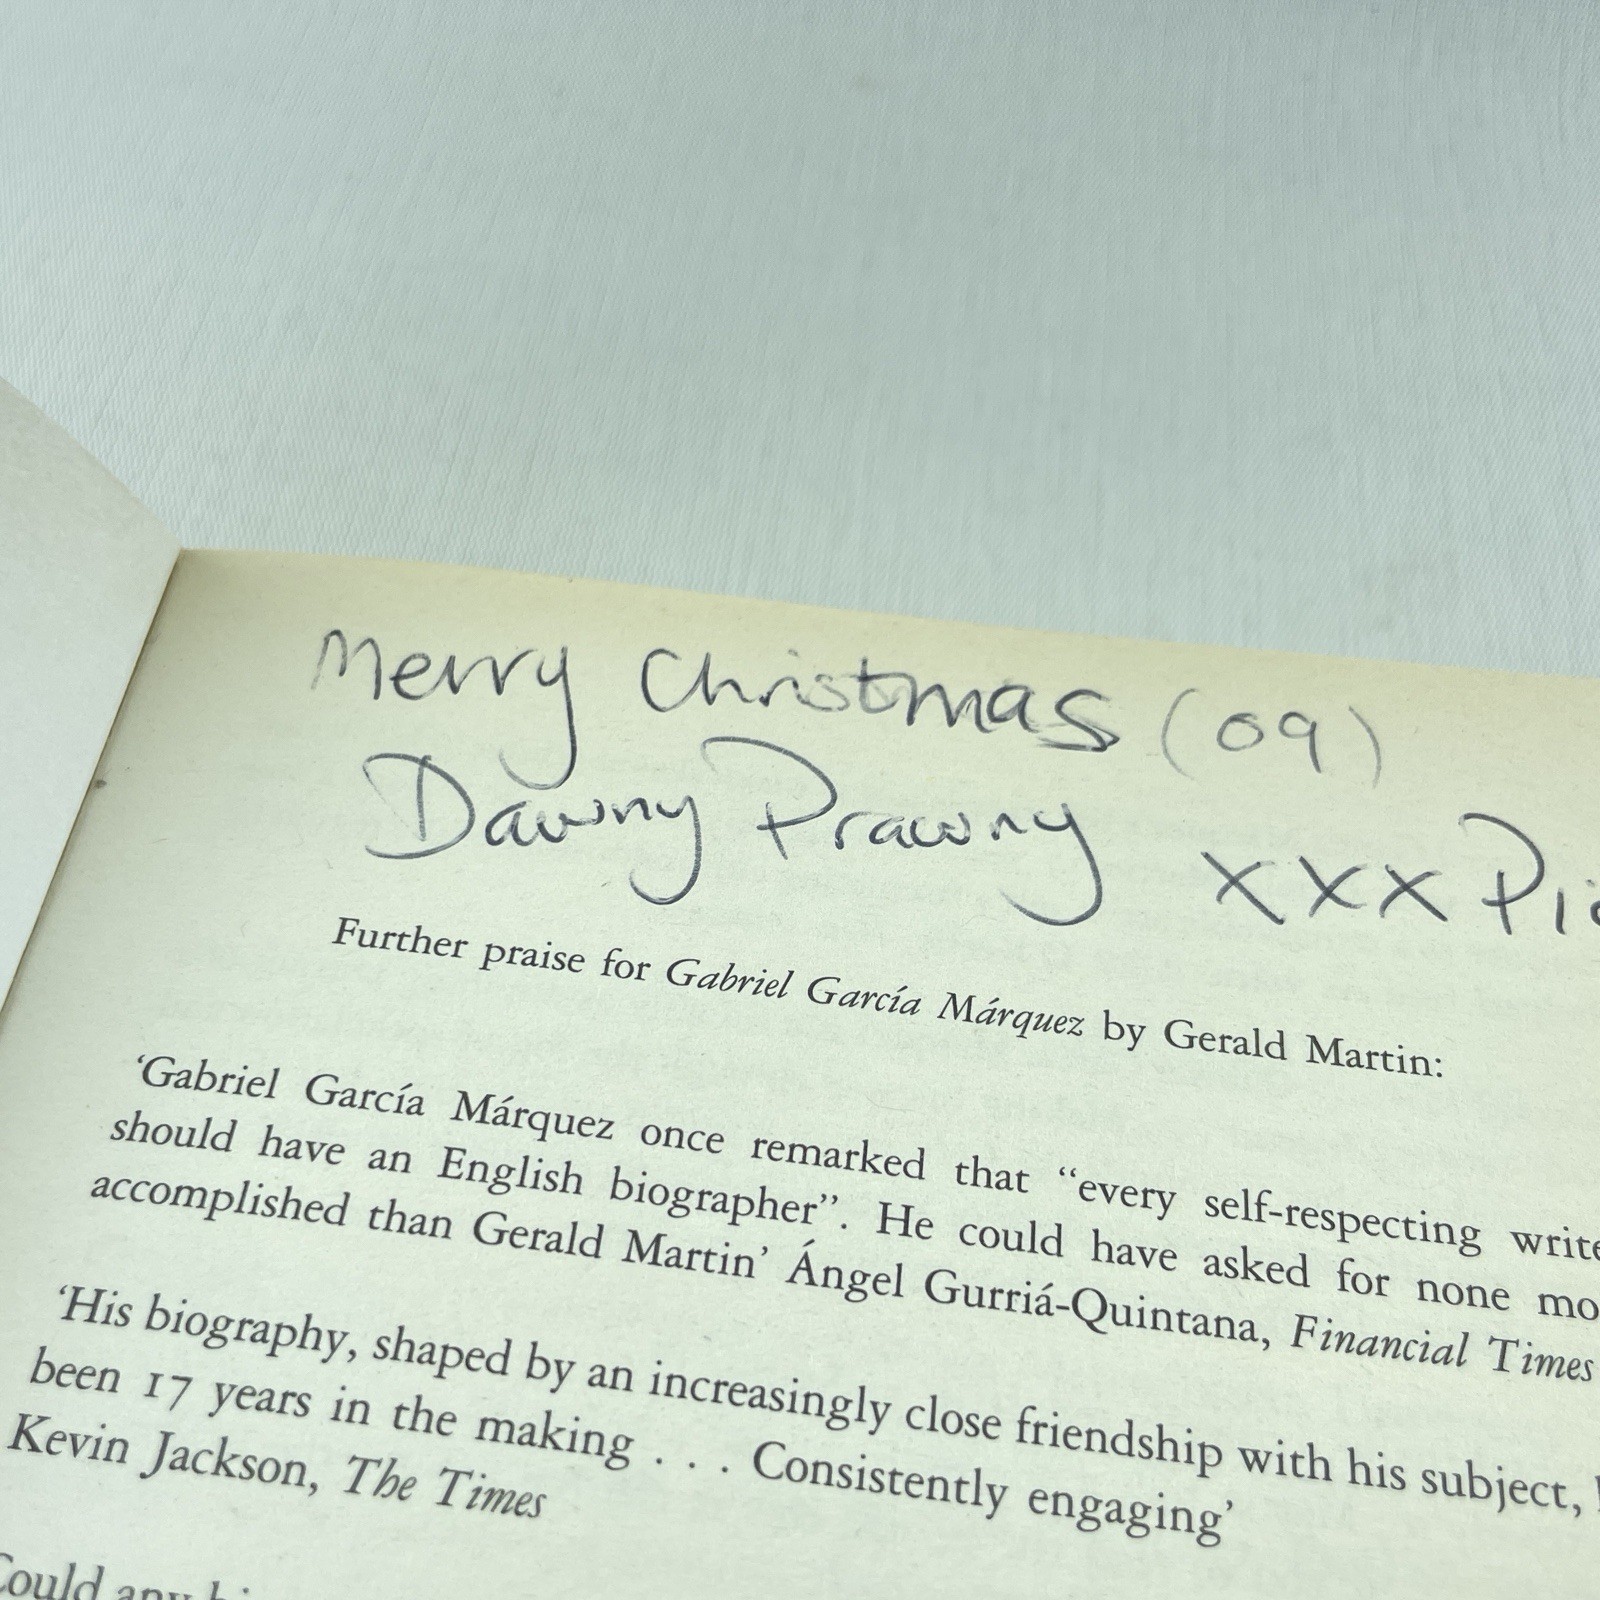 Merry Christmas (09)
Dawny Prawny xxx
Further praise for Gabriel García Márquez by Gerald Martin:
‘Gabriel García Márquez once remarked that “every self-respecting
should have an English biographer”. He could have asked for none
accomplished than Gerald Martin’ Ángel Gurriá-Quintana, Financial Times
‘His biography, shaped by an increasingly close friendship with his subject,
been 17 years in the making . . . Consistently engaging’
Kevin Jackson, The Times
Could any